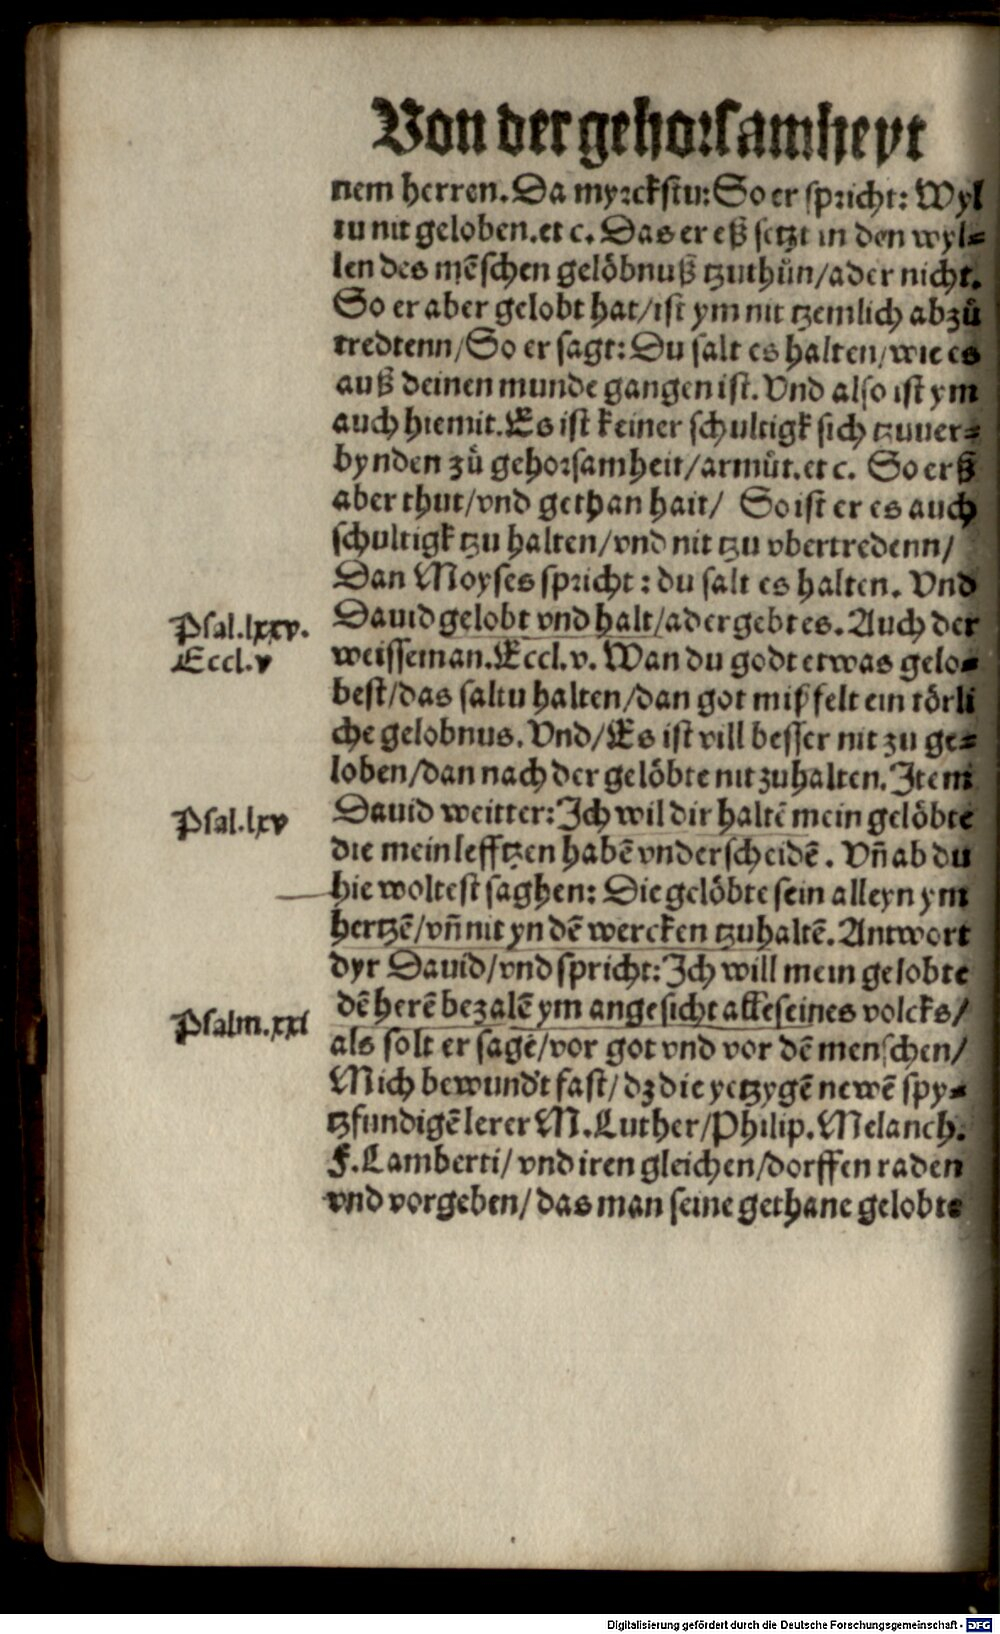 Von der gehorsamheyt
nem herren. Da myrckstu: So er spricht: Wyl
tu nit geloben. et c. Das er eß setzt in den wyl=
len des mẽschen gelöbnuß tzuthůn/ader nicht.
So er aber gelobt hat/ist ym nit tzemlich abzů
tredtenn/So er sagt: Du salt es halten/wie es
auß deinen munde gangen ist. Vnd also ist ym
auch hiemit. Es ist keiner schultigk sich tzuuer=
bynden zů gehorsamheit/armůt. et c. So erß
aber thut/vnd gethan hait/ So ist er es auch
schultigk tzu halten/vnd nit tzu vbertredenn/
Dan Moyses spricht: du salt es halten. Vnd
Psal.lxxv.
Dauid gelobt vnd halt/ader gebt es. Auch der
Eccl.v
weisseman. Eccl.v. Wan du godt etwas gelo=
best/das saltu halten/dan got mißfelt ein törli
che gelobnus. Vnd/Es ist vill besser nit zu ge=
loben/dan nach der gelöbte nit zuhalten. Item
Psal.lxv
Dauid weitter: Ich wil dir haltẽ mein gelöbte
die mein lefftzen habẽ vnderscheidẽ. Vñ ab du
hie woltest saghen: Die gelöbte sein alleyn ym
hertzẽ/vñ nit yn dẽ wercken tzuhaltẽ. Antwort
dyr Dauid/vnd spricht: Ich will mein gelobte
Psalm.xxi
dẽ herẽ bezalẽ ym angesicht alle seines volcks/
als solt er sagẽ/vor got vnd vor dẽ menschen/
Mich bewund't fast/dz die yetzygẽ newẽ spy=
tzfundigẽ lerer M. Luther/Philip. Melanch.
F. Lamberti/vnd iren gleichen/dorffen raden
vnd vorgeben/das man seine gethane gelobte
Digitalisierung gefördert durch die Deutsche Forschungsgemeinschaft - DFG